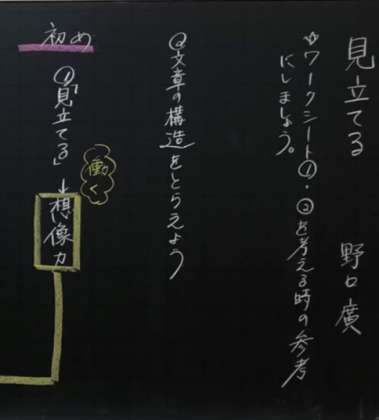 見立てる　野口廣
☆ワークシート①・②を考える時の参考
にしましょう。
◎文章の構造をとらえよう
初め
①「見立てる」→想像力
働く